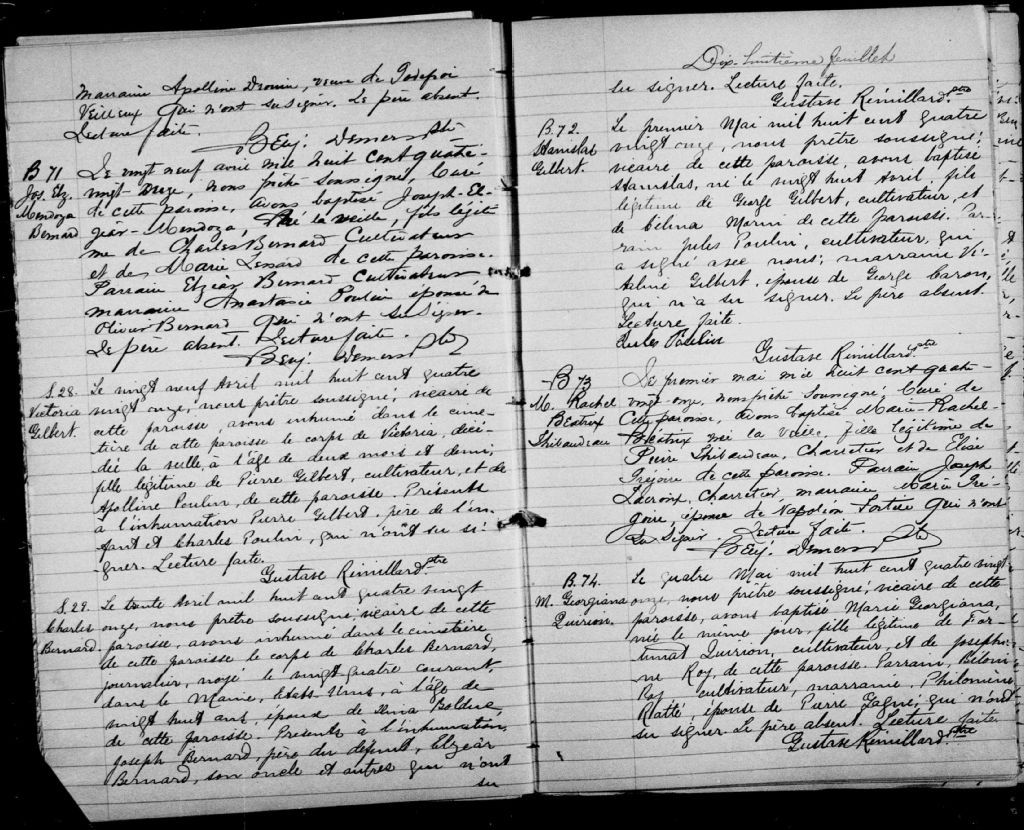 marraine Apolline Drouin, veuve de Godefroi
Veilleux qui n'ont su signer. Le père absent.
Lecture faite.
Benj. Demers Ptre
B 71
Jos. Elz.
Mendoza
Bernard
Le vingt neuf avril mil huit cent quatre-
vingt-onze, nous prêtre soussigné, Curé
de cette paroisse, avons baptisé Joseph-El-
zéar-Mendoza, né la veille, fils légiti
me de Charles Bernard Cultivateur
et de Marie Lessard de cette paroisse.
Parrain Elzéar Bernard Cultivateur
marraine Anastasie Poulin épouse de
Olivier Bernard qui n'ont su signer.
Le père absent. Lecture faite.
Benj. Demers Ptre
S. 28.
Victoria
Gilbert.
Le vingt neuf Avril mil huit cent quatre
vingt onze, nous prêtre soussigné, vicaire de
cette paroisse avons inhumé dans le cime-
tière de cette paroisse le corps de Victoria, décé-
dée la veille, à l'âge de deux mois et demi,
fille légitime de Pierre Gilbert, cultivateur, et de
Apolline Poulin, de cette paroisse. Présents
à l'inhumation Pierre Gilbert père de l'en-
fant et Charles Poulin, qui n'ont su si-
gner. Lecture faite.
Gustave Rémillard. ptre
S. 29.
Charles
Bernard.
Le trente Avril mil huit cent quatre vingt
onze, nous prêtre soussigné, vicaire de cette
paroisse, avons inhumé dans le cimetière
de cette paroisse le corps de Charles Bernard,
journalier, noyé le vingt quatre courant,
dans le Maine, Etats Unis, à l'âge de
vingt huit ans, époux de Bolduc,
de cette paroisse. Présents à l'inhumation,
Joseph Bernard, père du défunt, Elzéar
Bernard, son oncle et autres qui n'ont
su
Dix-huitième feuillet
su signer. Lecture faite.
Gustave Rémillard. ptre
B. 72.
Stanislas
Gilbert.
Le premier Mai mil huit cent quatre
vingt onze, nous prêtre soussigné,
vicaire de cette paroisse, avons baptisé
Stanislas, né le vingt huit Avril, fils
légitime de George Gilbert, cultivateur, et
de Célina Morin de cette paroisse. Par-
rain Jules Poulin, cultivateur, qui
a signé avec nous; marraine Vi-
taline Gilbert, épouse de George Caron,
qui n'a su signer. Le père absent.
Lecture faite.
Jules Poulin
Gustave Rémillard. ptre
B 73
M. Rachel
Béatrix
Thibaudeau
Le premier mai mil huit cent quatre-
vingt-onze, nous prêtre soussigné, Curé de
cette paroisse, avons baptisé Marie-Rachel-
Béatrix née la veille, fille légitime de
Pierre Thibaudeau, Charretier et de Elise
Grégoire de cette paroisse. Parrain Joseph
Lacroix, Charretier, marraine Marie Gré-
goire, épouse de Napoléon Fortier qui n'ont
su signer. Lecture faite.
Benj. Demers Ptre
B. 74.
M. Georgiana
Quirion.
Le quatre Mai mil huit cent quatre vingt
onze, nous prêtre soussigné, vicaire de cette
paroisse, avons baptisé Marie Georgiana,
née le même jour, fille légitime de For-
tunat Quirion, cultivateur, et de Joséphi-
ne Roy, de cette paroisse. Parrain, Béloni
Roy cultivateur, marraine, Philomène
Ratté, épouse de Pierre Gagné, qui n'ont
su signer. Le père absent. Lecture faite
Gustave Rémillard. ptre